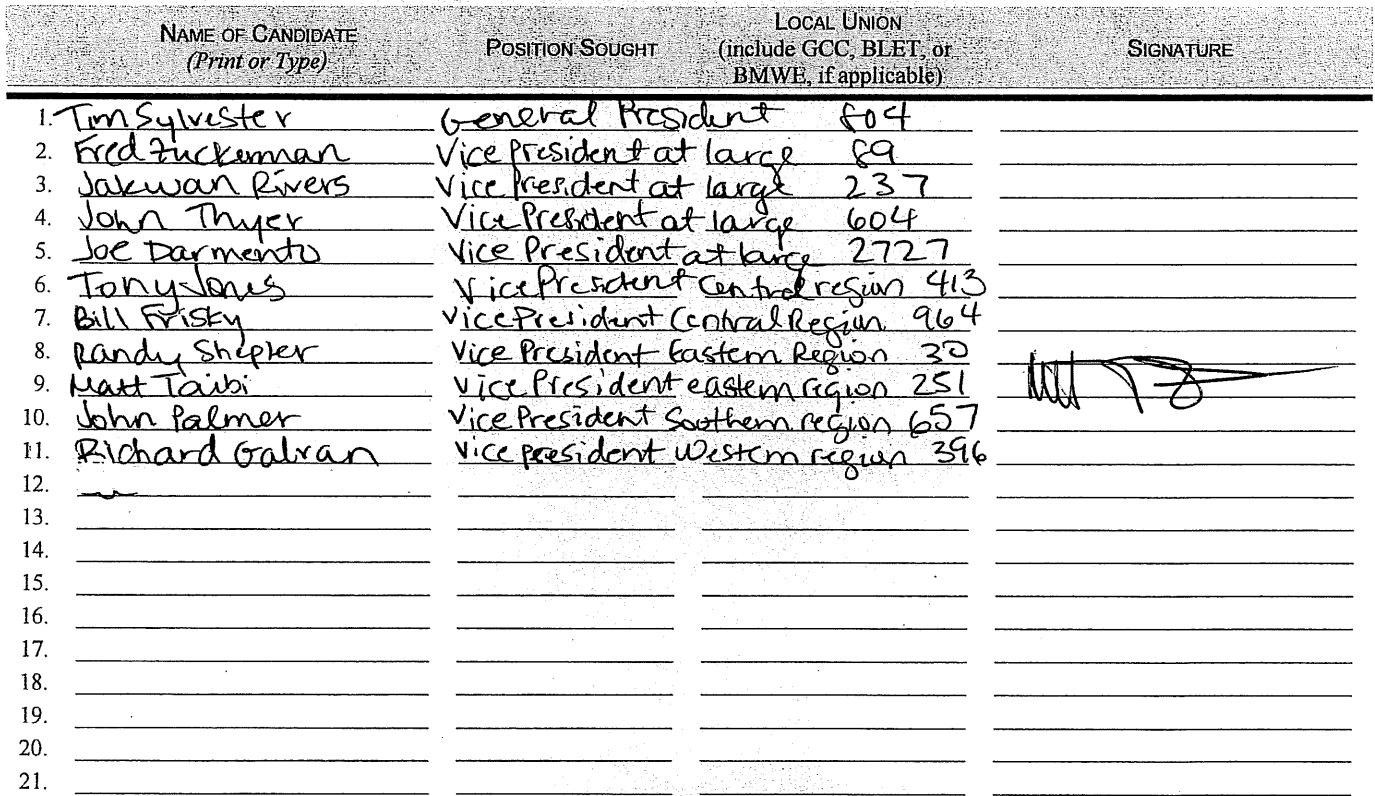 NAME OF CANDIDATE (Print or Type) POSITION SOUGHT LOCAL UNION (include GCC, BLET, or BMWE, if applicable) SIGNATURE
1. Tim Sylvester General President 804
2. Fred Zuckerman Vice President at large 89
3. Jakwan Rivers Vice President at large 237
4. John Thyer Vice President at large 604
5. Joe Darmento Vice President at large 2727
6. Tony Jones Vice President Central region 413
7. Bill Frisky Vice President Central Region 964
8. Randy Shepler Vice President Eastern Region 30
9. Matt Taibi Vice President eastern region 251
10. John Palmer Vice President Southern region 657
11. Richard Galvan Vice president Western region 396
12.
13.
14.
15.
16.
17.
18.
19.
20.
21.